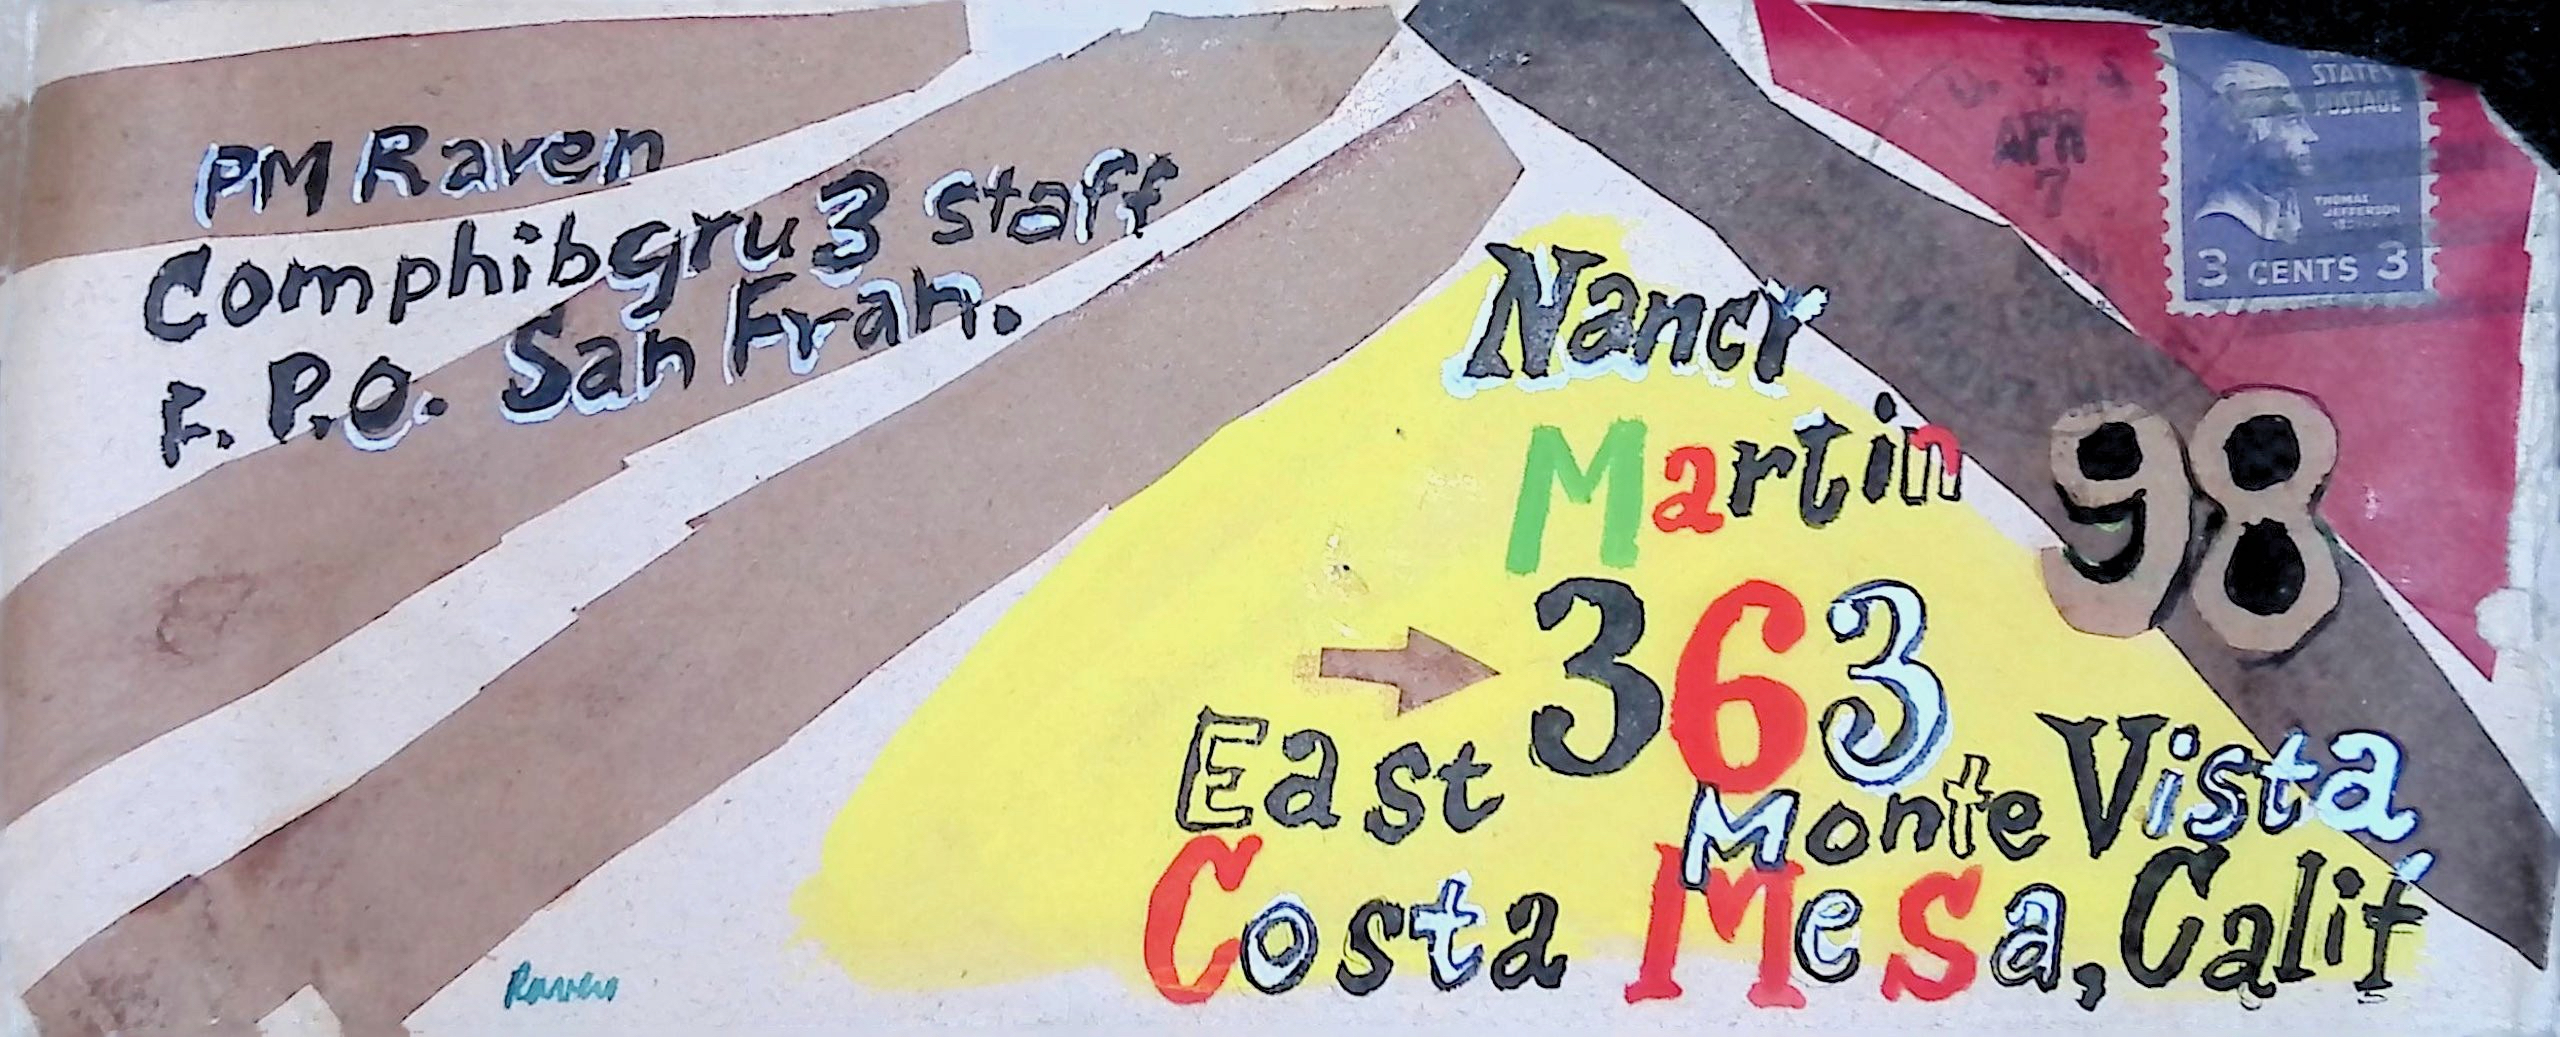 PM Raven
Comphibgru 3 Staff
F. P.O. San Fran.
U. S. S
APR
7
STATES
POSTAGE
THOMAS
JEFFERSON
3 CENTS 3
Nancy
Martin
98
363
East Monte Vista,
Costa Mesa, Calif
Raven